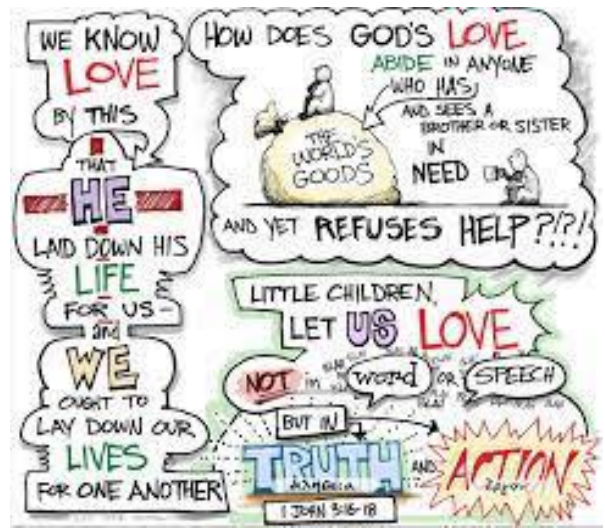 WE KNOW
LOVE
BY THIS
THAT
HE
LAID DOWN HIS
LIFE
FOR US-
and
WE
OUGHT TO
LAY DOWN OUR
LIVES
FOR ONE ANOTHER
HOW DOES GOD'S LOVE
ABIDE IN ANYONE
WHO HAS
THE
WORLD'S
GOODS
AND SEES A
BROTHER OR SISTER
IN
NEED
AND YET REFUSES HELP?!?!
LITTLE CHILDREN,
LET US LOVE
NOT in word OR SPEECH
BUT IN
TRUTH AND ACTION
1 JOHN 3:16-18